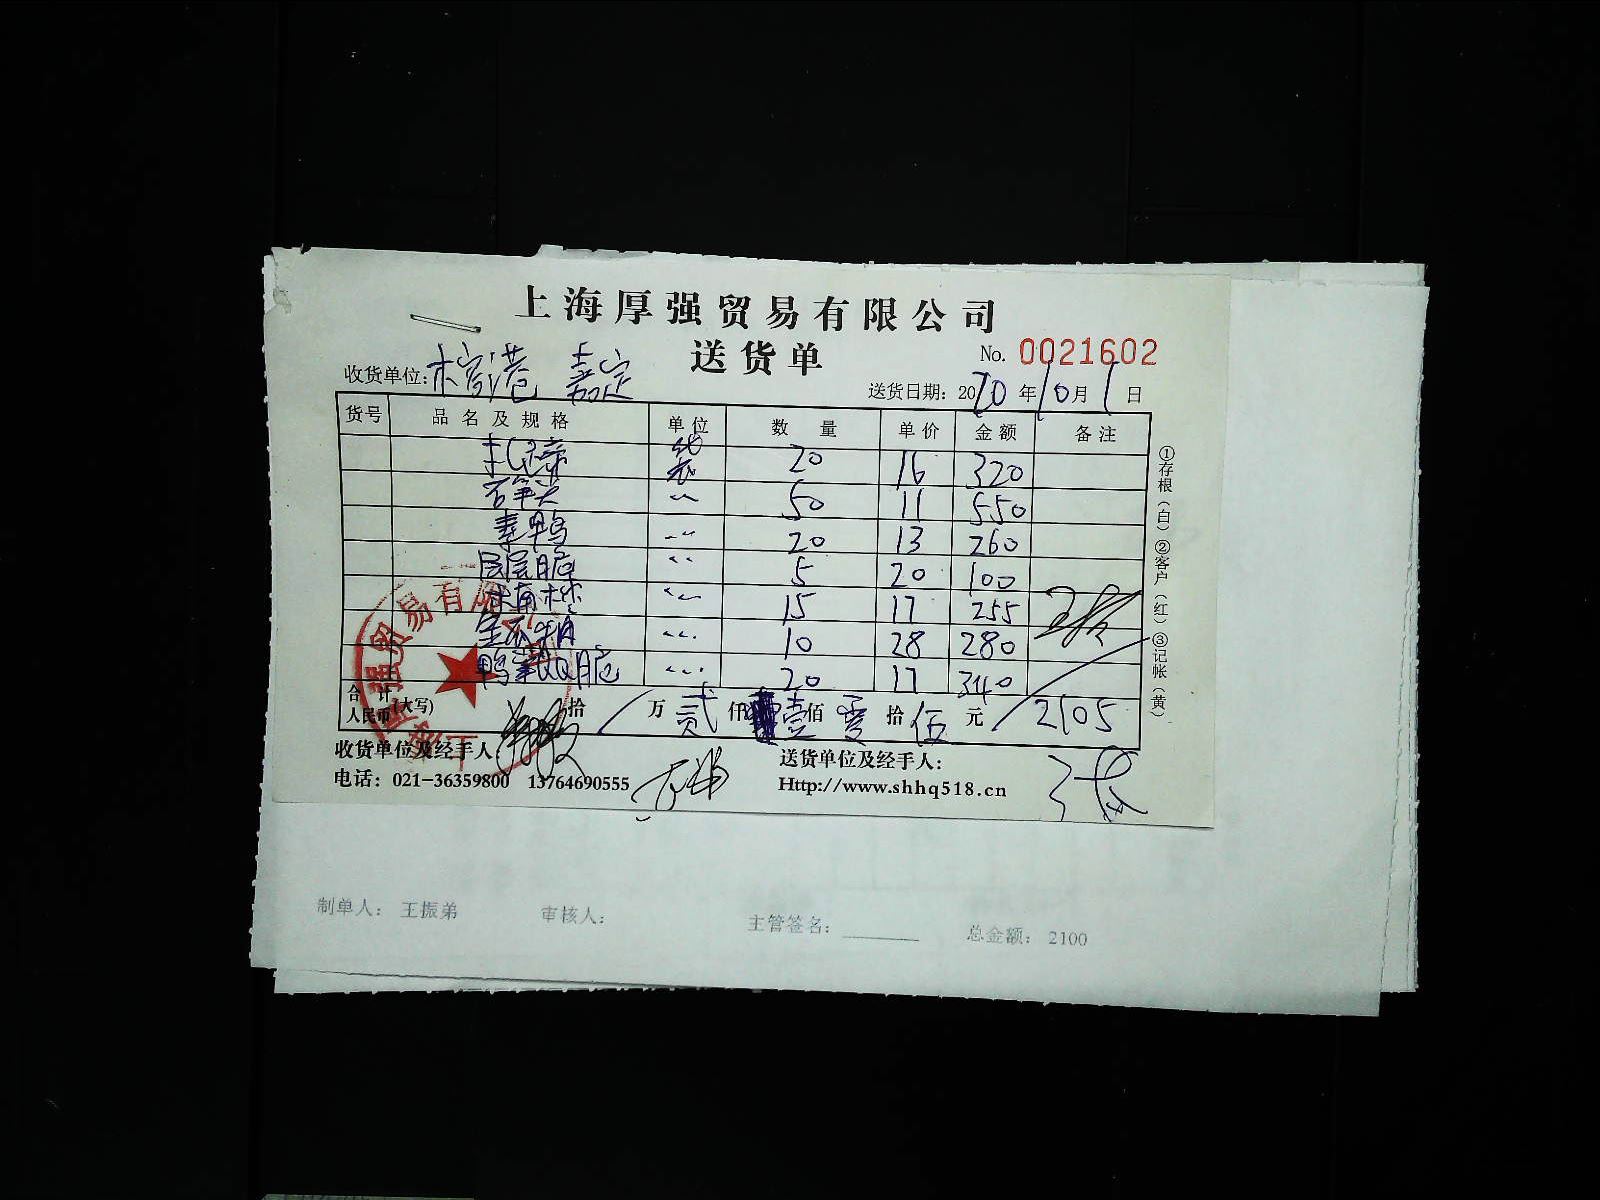 上海厚强贸易有限公司
送货单
No. 0021602
收货单位: 嘉定
送货日期: 2020 年 10 月 1 日
货号 品名及规格 单位 数量 单价 金额 备注
袋 20 16 320
50 11 550
素鸭 20 13 260
层层脆 5 20 100
15 17 255
10 28 280
20 17 340
合计人民币(大写) 拾 万 贰 仟 壹 佰 零 拾 伍 元 2105
①存根(白)②客户(红)③记帐(黄)
收货单位及经手人: 送货单位及经手人:
电话: 021-36359800 13764690555 Http://www.shhq518.cn
制单人: 王振弟 审核人: 主管签名: 总金额: 2100